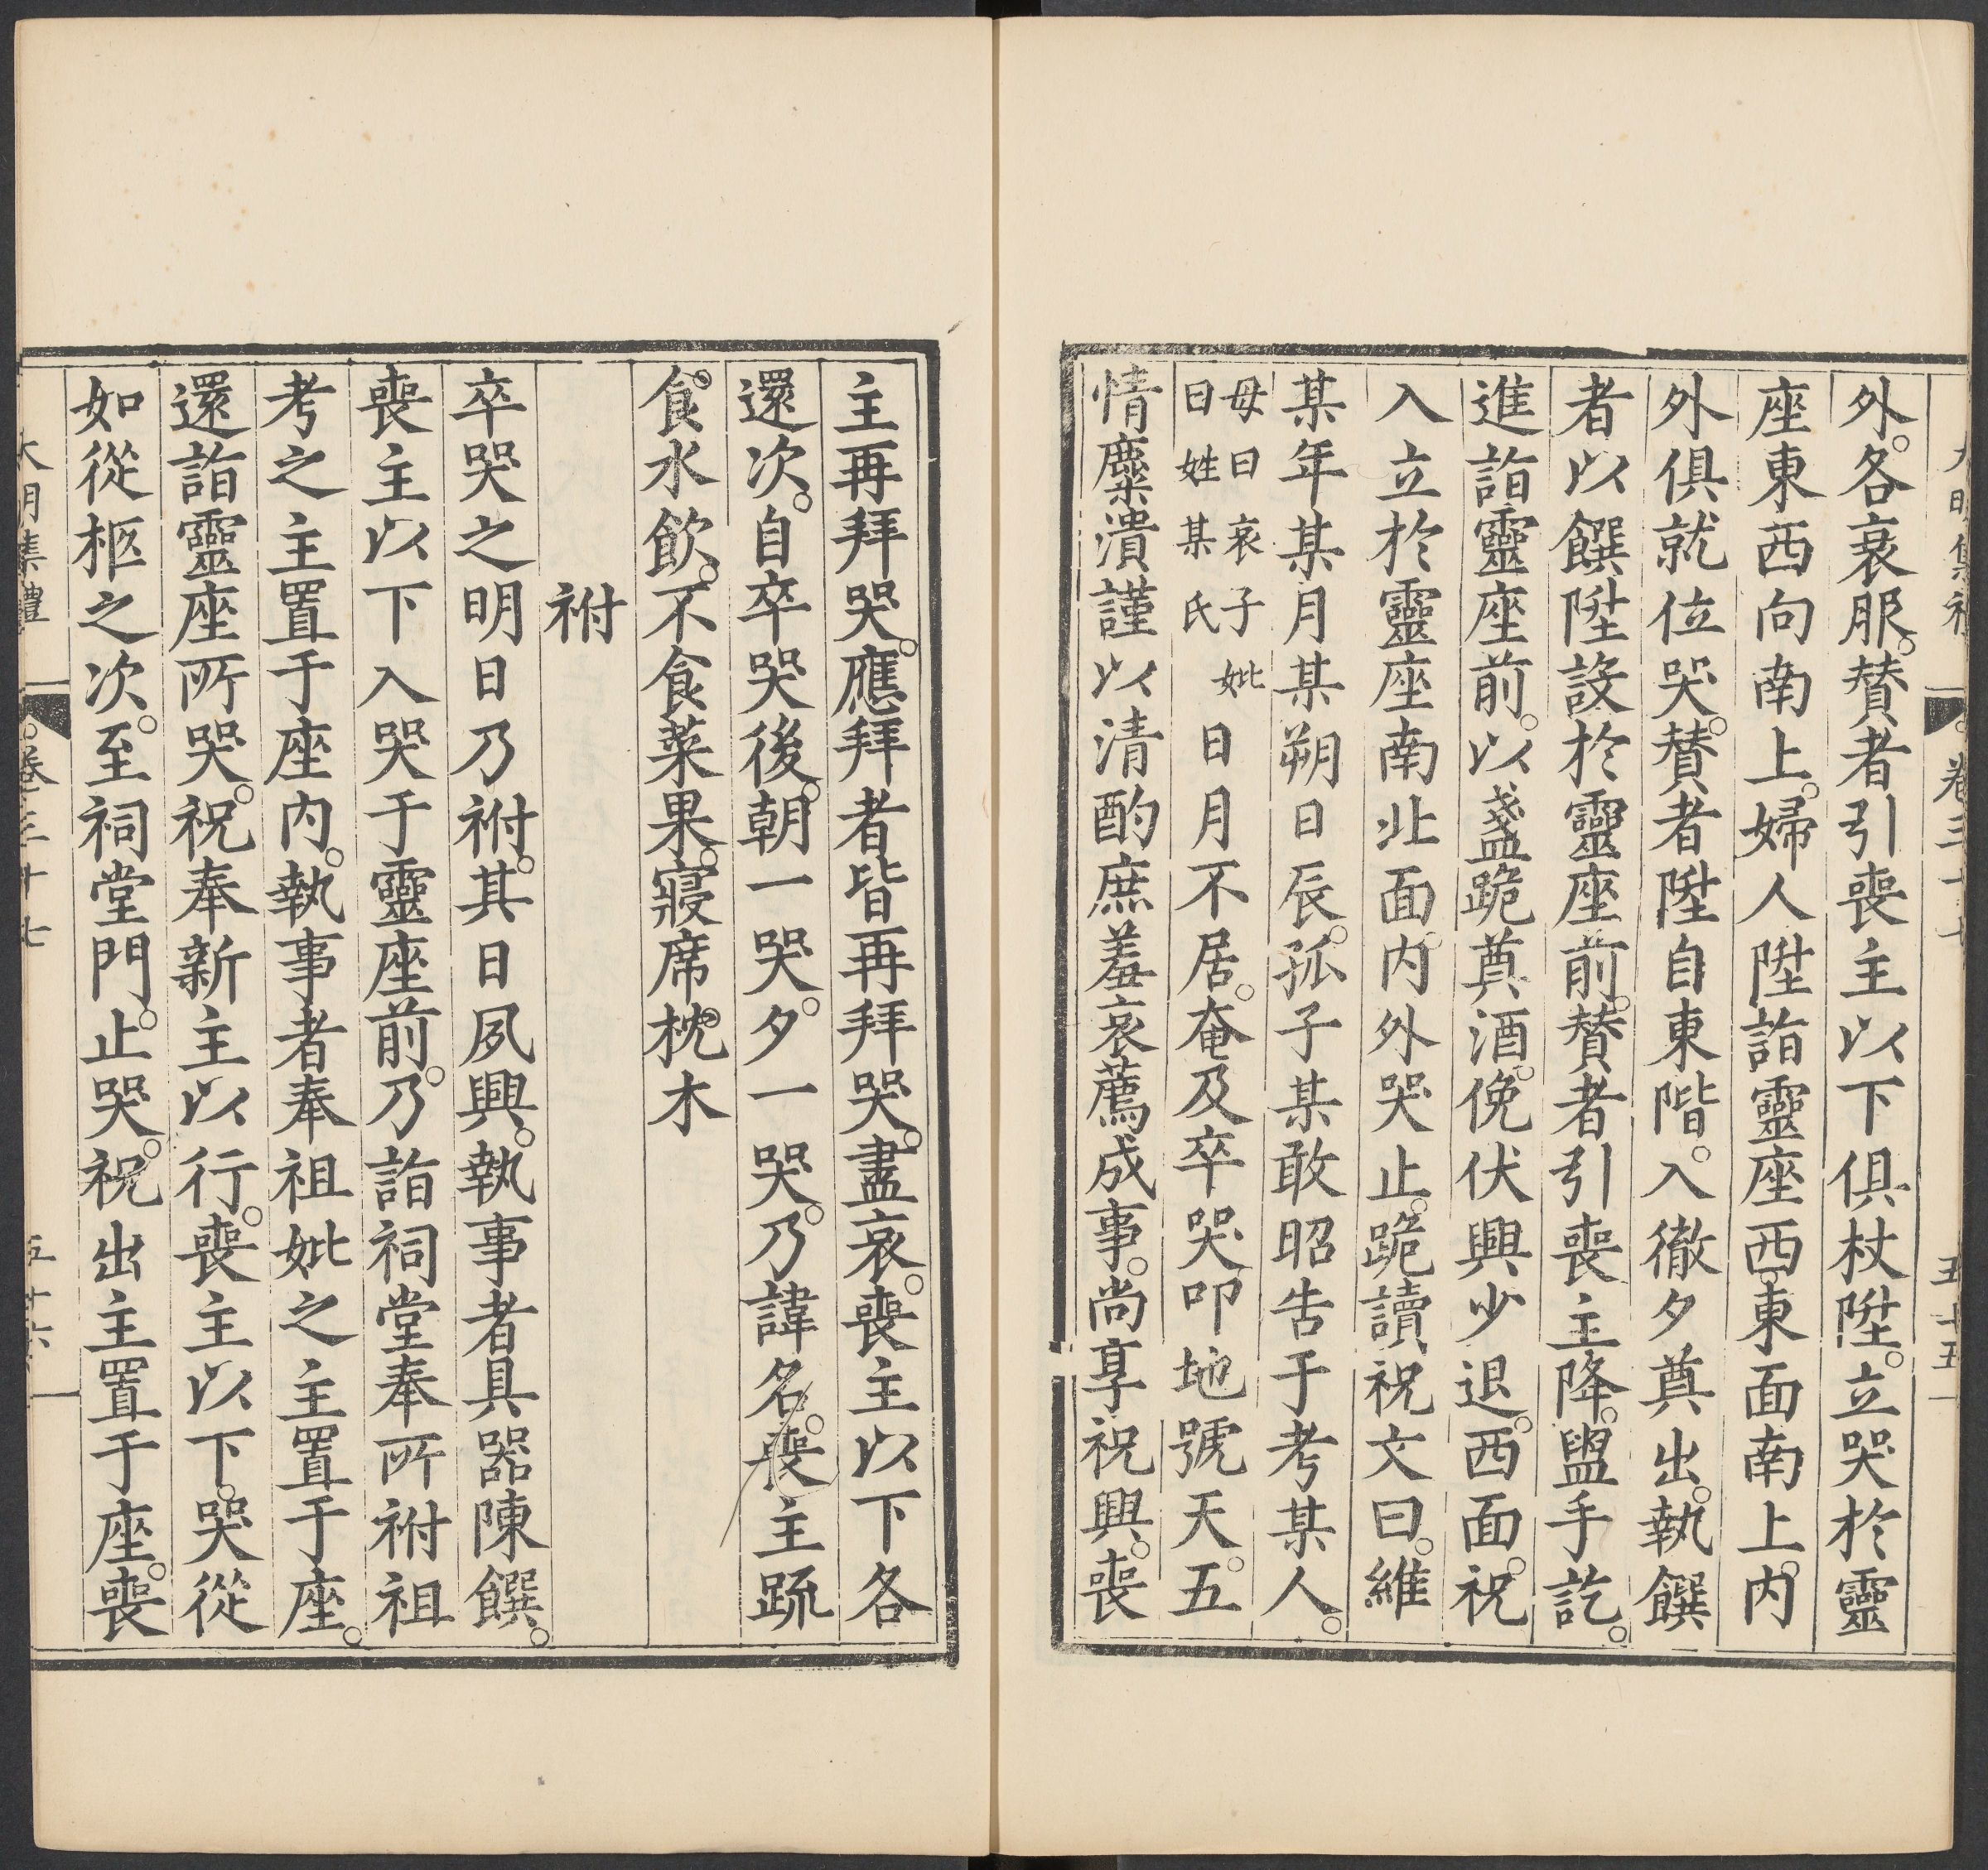 大明集禮 卷三十七 五十五
外。各衰服。賛者引喪主以下俱杖陞。立哭於靈
座東西向南上。婦人陞詣靈座西。東面南上。内
外俱就位哭。賛者陞自東階。入徹夕奠出。執饌
者以饌陞設於靈座前。賛者引喪主降。盥手訖。
進詣靈座前。以盞跪奠酒。俛伏興少退。西面。祝
入立於靈座南北面。内外哭止。跪讀祝文曰。維
某年某月某朔日辰。孤子某敢昭告于考某人。
母曰哀子妣
曰姓某氏
日月不居。奄及卒哭叩地號天。五
情糜潰謹以清酌庶羞哀薦成事。尚享祝興。喪
主再拜哭。應拜者皆再拜哭。盡哀。喪主以下各
還次。自卒哭後。朝一哭。夕一哭。乃諱名。喪主疏
食。水飲。不食菜果。寢席。枕木
祔
卒哭之明日乃祔。其日夙興。執事者具器陳饌。
喪主以下入哭于靈座前。乃詣祠堂奉所祔祖
考之主置于座内。執事者奉祖妣之主置于座。
還詣靈座所哭。祝奉新主以行。喪主以下。哭從
如從柩之次。至祠堂門。止哭。祝出主置于座。喪
大明集禮 卷三十七 五十六